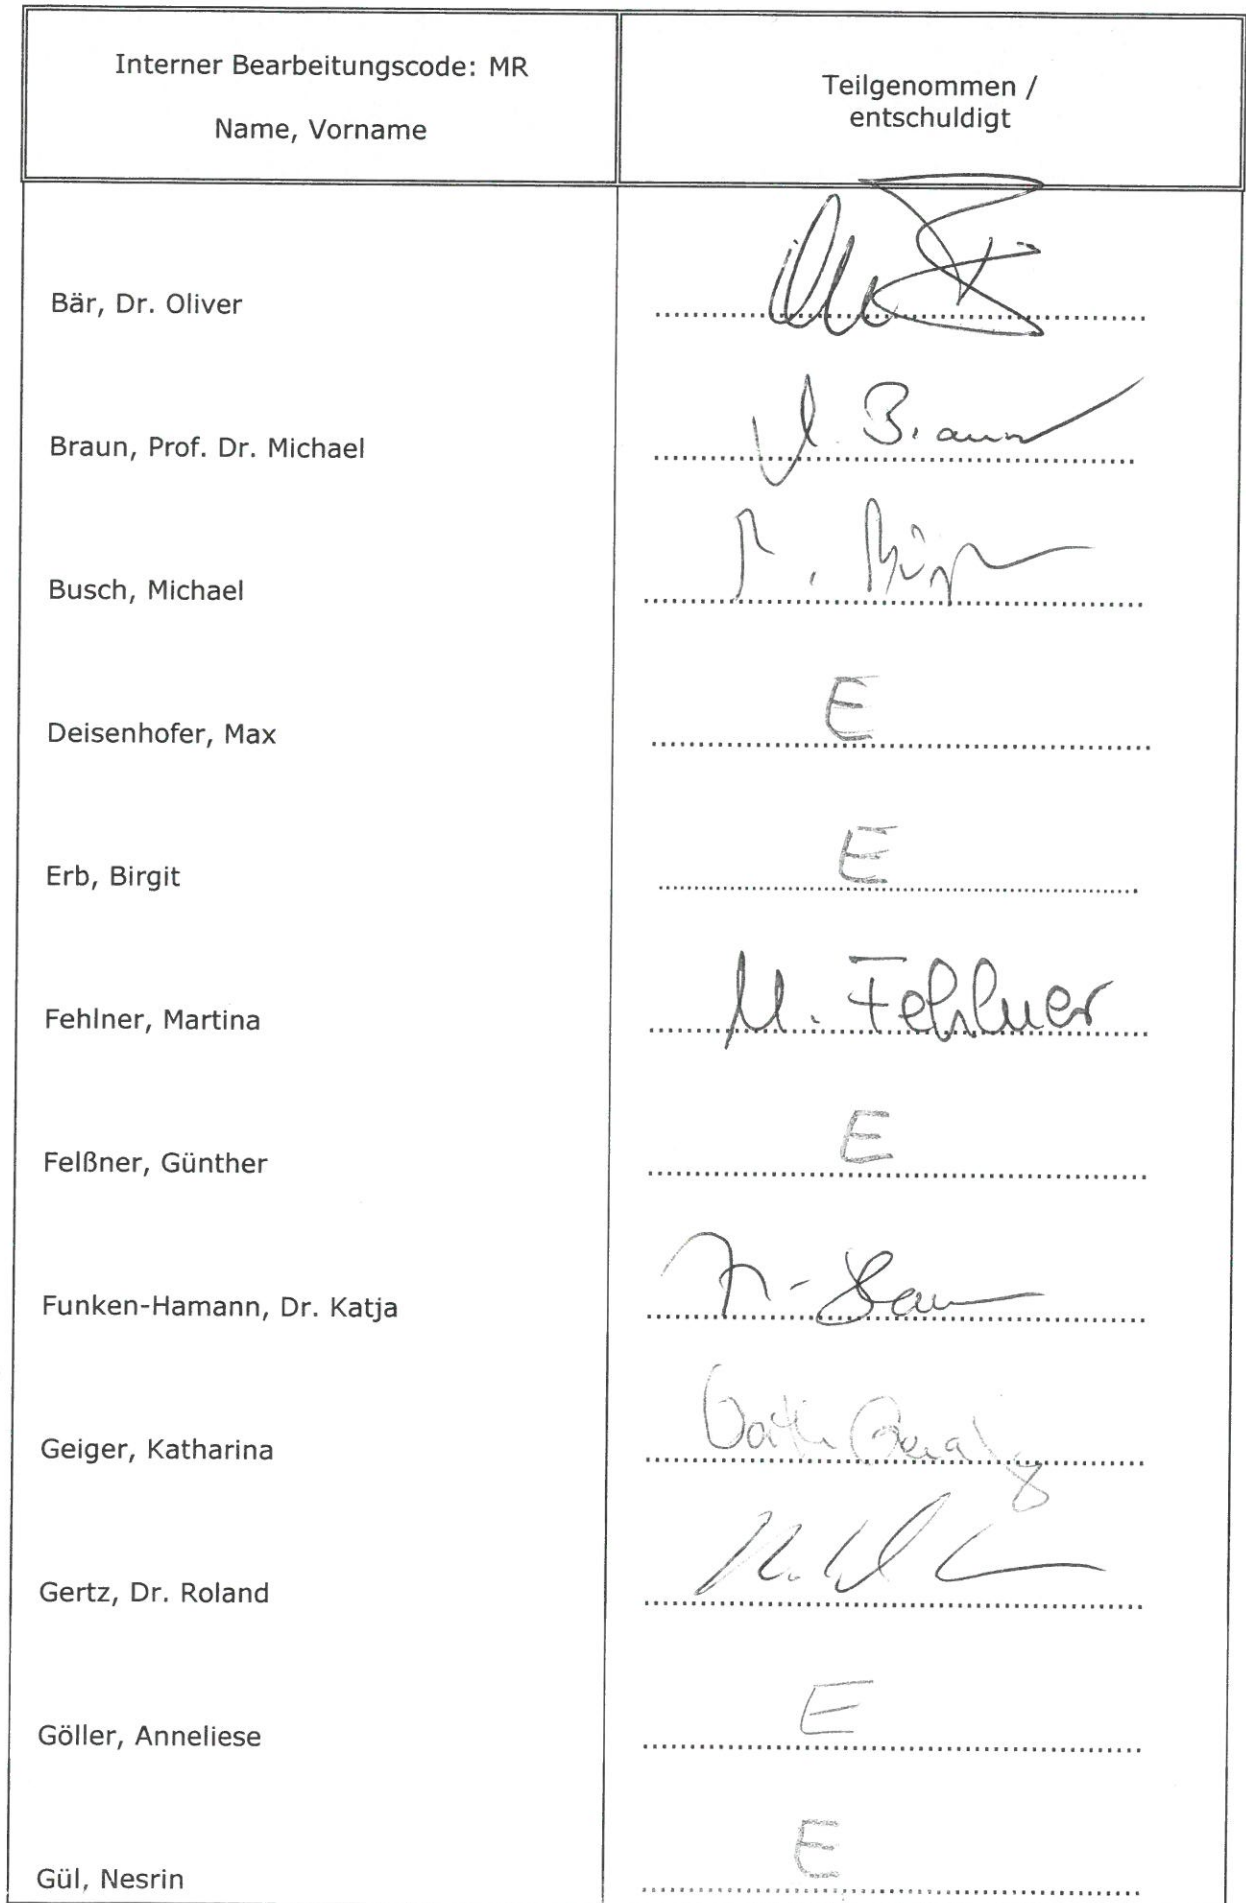 Interner Bearbeitungscode: MR
Name, Vorname
Teilgenommen /
entschuldigt
Bär, Dr. Oliver
Braun, Prof. Dr. Michael
. Braun
Busch, Michael
Deisenhofer, Max
E
Erb, Birgit
E
Fehlner, Martina
M. Fehlner
Felßner, Günther
E
Funken-Hamann, Dr. Katja
Geiger, Katharina
Gertz, Dr. Roland
Göller, Anneliese
E
Gül, Nesrin
E